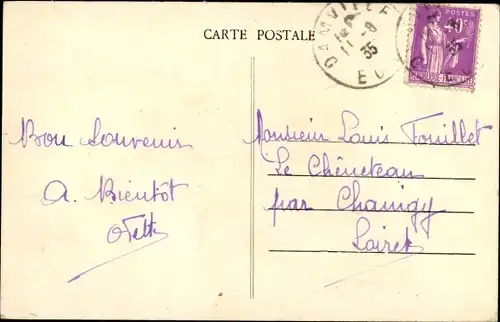 CARTE POSTALE
DAMVILLE
35
POSTES
40c
Bon Souvenir
A. Bientôt
Monsieur Louis Fouillet
Le Chêneteau
par Chaingy
Loiret